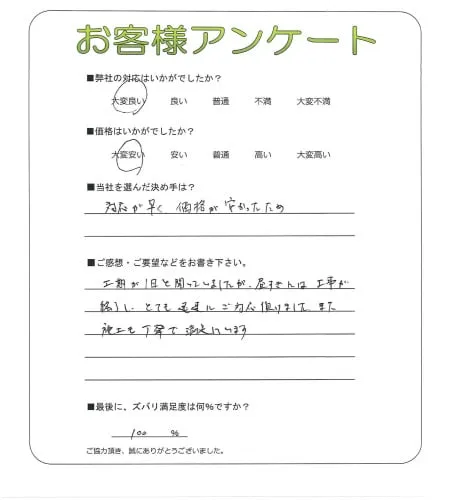 お客様アンケート
■弊社の対応はいかがでしたか?
大変良い 良い 普通 不満 大変不満
■価格はいかがでしたか?
大変安い 安い 普通 高い 大変高い
■当社を選んだ決め手は?
対応が早く 価格が安かったため
■ご感想・ご要望などをお書き下さい。
工期が1日と聞いていましたが、昼すぎには工事が
終了し、とても迅速にご対応頂けました。また
施工も丁寧で満足しています
■最後に、ズバリ満足度は何%ですか?
100 %
ご協力頂き、誠にありがとうございました。